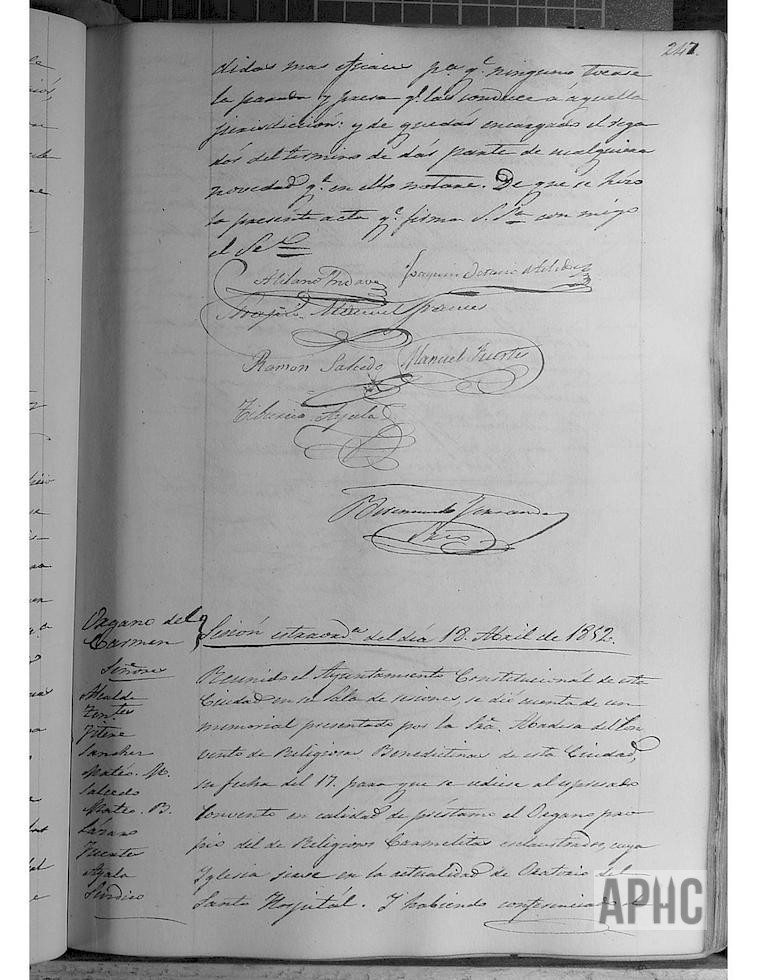 247.
didas mas eficaces pa. q.e ninguno tocase
la parada y presa q.e las conduce a aquella
jurisdicion: y de quedar encargados el rega
dor del termino de dar parte de cualquiera
novedad q.e en ello notare. De que se hizo
la presente acta q.e firma S. Sa. con migo
el Se
Joaquin
Manuel
Ramon Salcedo Manuel Fuertes
Tiburcio Ayala
Organo del
Carmen
Sesion estraorda. del dia 18 Abril de 1852.
Señores
Alcalde
Ten.tes
Sanchez
Mateo. M.
Salcedo
Mateo. B.
Lazaro
Fuertes
Ayala
Sindico
Reunido el Ayuntamiento Constitucional de esta
Ciudad en su Sala de sesiones, se dió cuenta de un
memorial presentado por la Sra. Abadesa del Con
vento de Religiosas Benedictinas de esta Ciudad,
su fecha del 17. para que se cediese al espresado
Convento en calidad de préstamo el Organo pro
pio del de Religiosos Carmelitas esclaustrados, cuya
Iglesia sirve en la actualidad de Oratorio del
Santo Hospital. Y habiendo conferenciado el
APHC